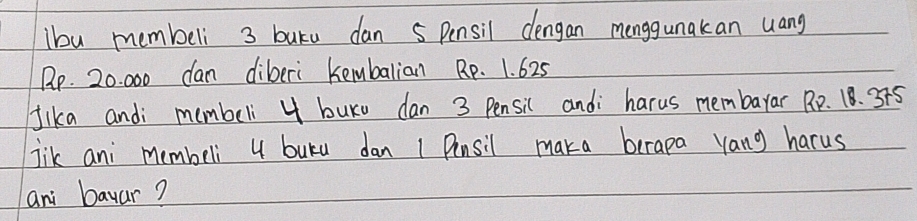 ibu membeli 3 buku dan 5 Pensil dengan menggunakan uang
Rp. 20.000 dan diberi kembalian Rp. 1.625
Jika andi membeli 4 buku dan 3 Pensil andi harus membayar Rp. 18.375
Jik ani membeli 4 buku dan 1 Pensil maka berapa yang harus
ani bayar ?